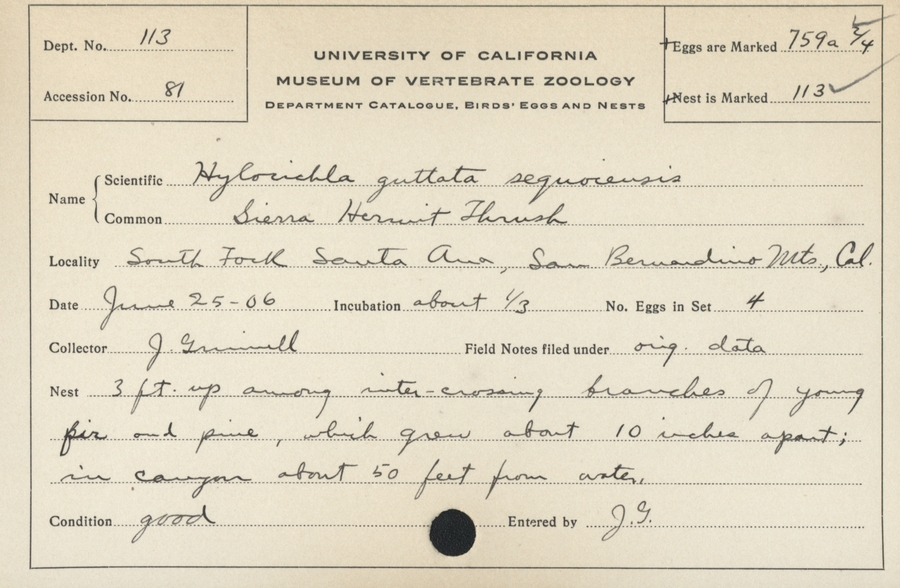 Dept. No. 113
Accession No. 81
UNIVERSITY OF CALIFORNIA
MUSEUM OF VERTEBRATE ZOOLOGY
DEPARTMENT CATALOGUE, BIRDS' EGGS AND NESTS
Eggs are Marked 759a 5/4
Nest is Marked 113 ✓
Name
Scientific Hylocichla guttata sequoiensis
Common Sierra Hermit Thrush
Locality South Fork Santa Ana, San Bernardino Mts., Cal.
Date June 25-06 Incubation about 1/3 No. Eggs in Set 4
Collector J. Grinnell Field Notes filed under orig. data
Nest 3 ft. up among inter-crossing branches of young
fir and pine, which grew about 10 inches apart;
in canyon about 50 feet from water.
Condition good Entered by J.G.